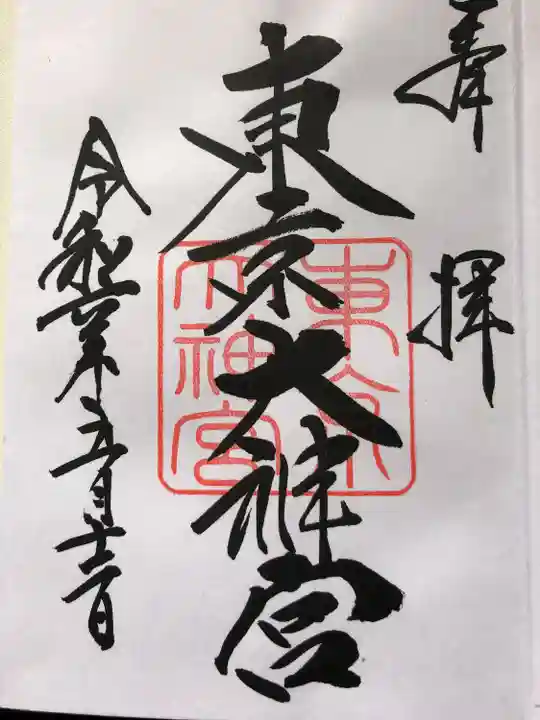 奉拝
東京大神宮
東京大神宮
令和六年五月十二日